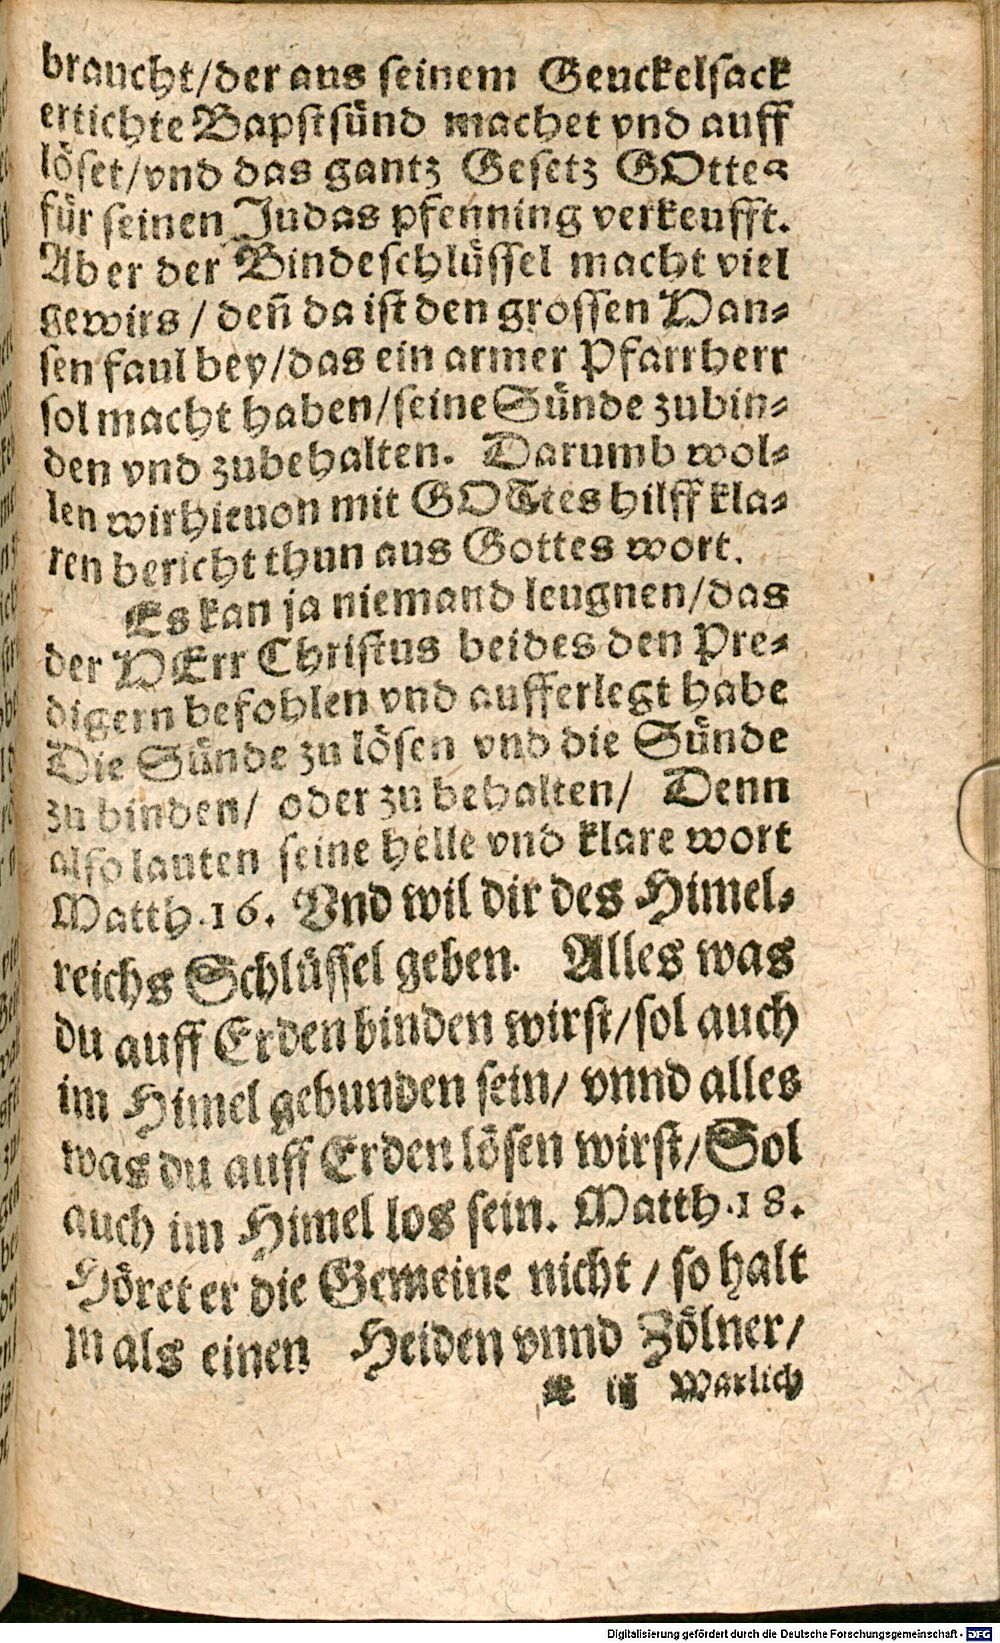 braucht/der aus seinem Geuckelsack
ertichte Bapstsünd machet vnd auff
löset/vnd das gantz Gesetz GOttes
für seinen Judas pfenning verkeufft.
Aber der Bindeschlüssel macht viel
gewirs / deñ da ist den grossen Han⸗
sen faul bey/das ein armer Pfarrherr
sol macht haben/seine Sünde zubin⸗
den vnd zubehalten. Darumb wol⸗
len wir hieuon mit GOTtes hilff kla⸗
ren bericht thun aus Gottes wort.
Es kan ja niemand leugnen/das
der HErr Christus beides den Pre⸗
digern befohlen vnd aufferlegt habe
Die Sünde zu lösen vnd die Sünde
zu binden/ oder zu behalten/ Denn
also lauten seine helle vnd klare wort
Matth.16. Vnd wil dir des Himel⸗
reichs Schlüssel geben. Alles was
du auff Erden binden wirst/sol auch
im Himel gebunden sein/ vnnd alles
was du auff Erden lösen wirst/Sol
auch im Himel los sein. Matth.18.
Höret er die Gemeine nicht / so halt
jn als einen Heiden vnnd Zölner/
iij Warlich
Digitalisierung gefördert durch die Deutsche Forschungsgemeinschaft - DFG